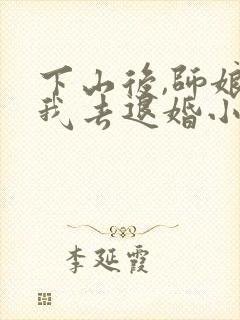 下山後,師娘
我去退婚小
李延霞